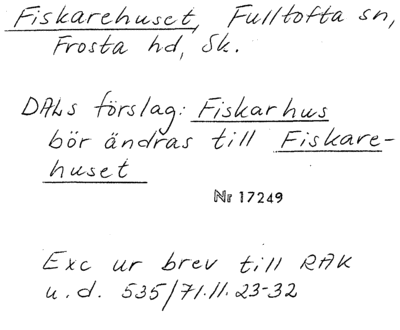 Fiskarehuset, Fulltofta sn,
Frosta hd, Sk.
DALs förslag: Fiskarhus
bör ändras till Fiskare-
huset
Nr 17249
Exc ur brev till RAK
u.d. 535/71.11.23-32